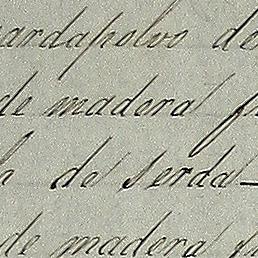 ardapolvo de
de madera p
da de serda
de madera p